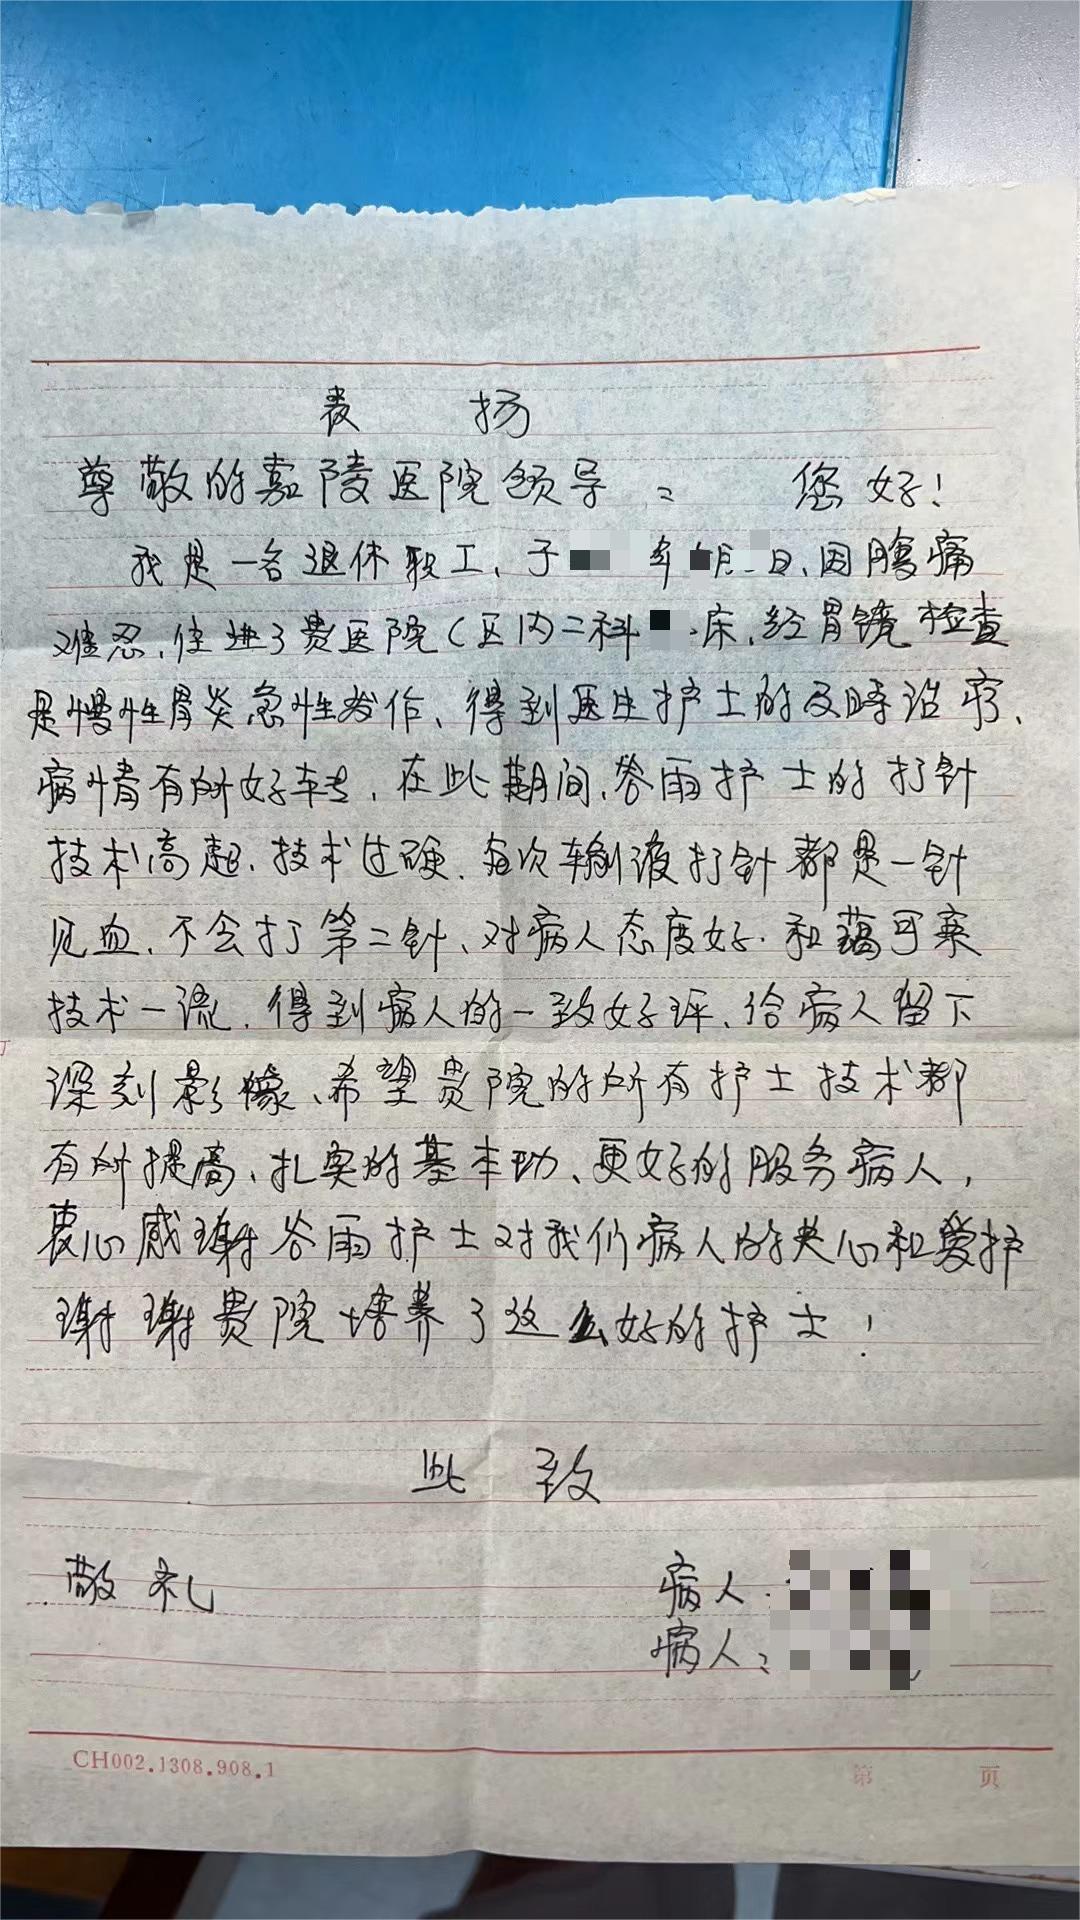 表 扬
尊敬的嘉陵医院领导： 您好！
我是一名退休职工、于 年 月 日、因腹痛
难忍、住进了贵医院（区内二科 床、经胃镜检查
是慢性胃炎急性发作、得到医生护士的及时治疗、
病情有所好转、在此期间、谷雨护士的打针
技术高超、技术过硬、每次输液打针都是一针
见血、不会打第二针、对病人态度好、和蔼可亲
技术一流、得到病人的一致好评、给病人留下
深刻影像、希望贵院的所有护士技术都
有所提高、扎实的基本功、更好的服务病人，
衷心感谢谷雨护士对我们病人的关心和爱护
谢谢贵院培养了这么好的护士！
此 致
敬礼 病人：
病人：
CH002.1308.908.1 第 页